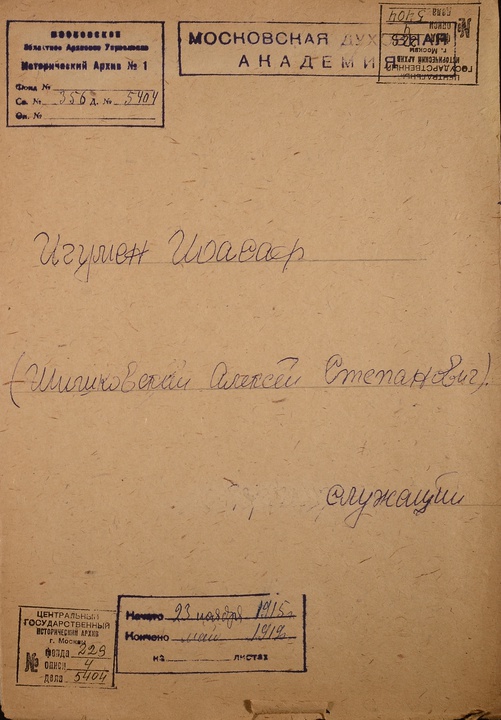 МОСКОВСКОЕ
Областное Архивное Управление
Исторический Архив № 1
Фонд №
Св. № 356 Д. № 5404
Оп. №
МОСКОВСКАЯ ДУХОВНАЯ
АКАДЕМИЯ
ЦЕНТРАЛЬНЫЙ
ГОСУДАРСТВЕННЫЙ
ИСТОРИЧЕСКИЙ АРХИВ
г. Москвы
№
описи 4
дела 5404
Игумен Иоасаф
(Шишковский Алексей Степанович).
служащий
ЦЕНТРАЛЬНЫЙ
ГОСУДАРСТВЕННЫЙ
ИСТОРИЧЕСКИЙ АРХИВ
г. Москвы
№ фонда 229
описи 4
дела 5404
Начато 23 ноября 1915 г.
Кончено май 1919 г.
на листах